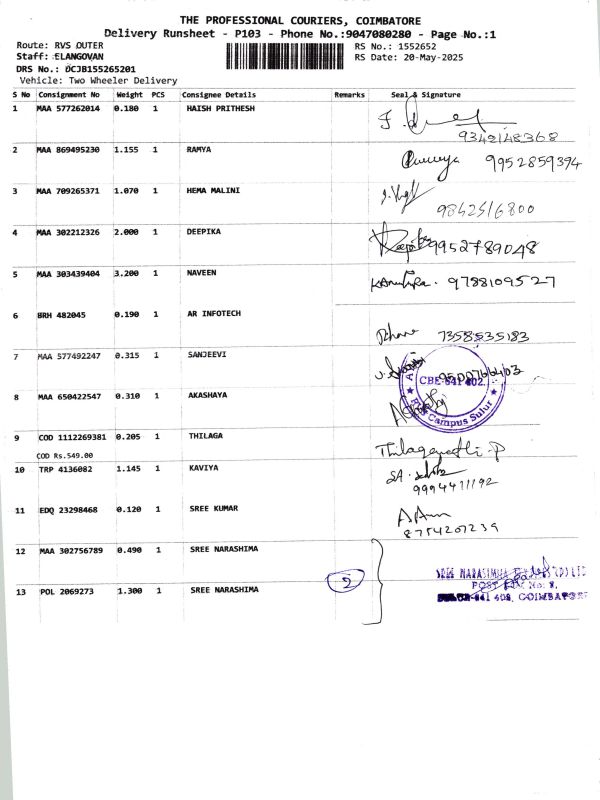 THE PROFESSIONAL COURIERS, COIMBATORE
Delivery Runsheet - P103 - Phone No.:9047080280 - Page No.:1
Route: RVS OUTER RS No.: 1552652
Staff: ELANGOVAN RS Date: 20-May-2025
DRS No.: DCJB155265201
Vehicle: Two Wheeler Delivery
S No Consignment No Weight PCS Consignee Details Remarks Seal & Signature
1 MAA 577262014 0.180 1 HAISH PRITHESH
9342148368
2 MAA 869495230 1.155 1 RAMYA 9952859394
3 MAA 709265371 1.070 1 HEMA MALINI
9842516800
4 MAA 302212326 2.000 1 DEEPIKA 9952789048
5 MAA 303439404 3.200 1 NAVEEN 9788109527
6 BRH 482045 0.190 1 AR INFOTECH
7358535183
7 MAA 577492247 0.315 1 SANJEEVI
CBE-641 402.
8 MAA 650422547 0.310 1 AKASHAYA
Campus Sulur
9 COD 1112269381 0.205 1 THILAGA
COD Rs.549.00
10 TRP 4136082 1.145 1 KAVIYA
9994411192
11 EDQ 23298468 0.120 1 SREE KUMAR
8754207239
12 MAA 302756789 0.490 1 SREE NARASHIMA
13 POL 2069273 1.300 1 SREE NARASHIMA 2
SREE NARASIMHA
POST
SULUR-641 402, COIMBATORE